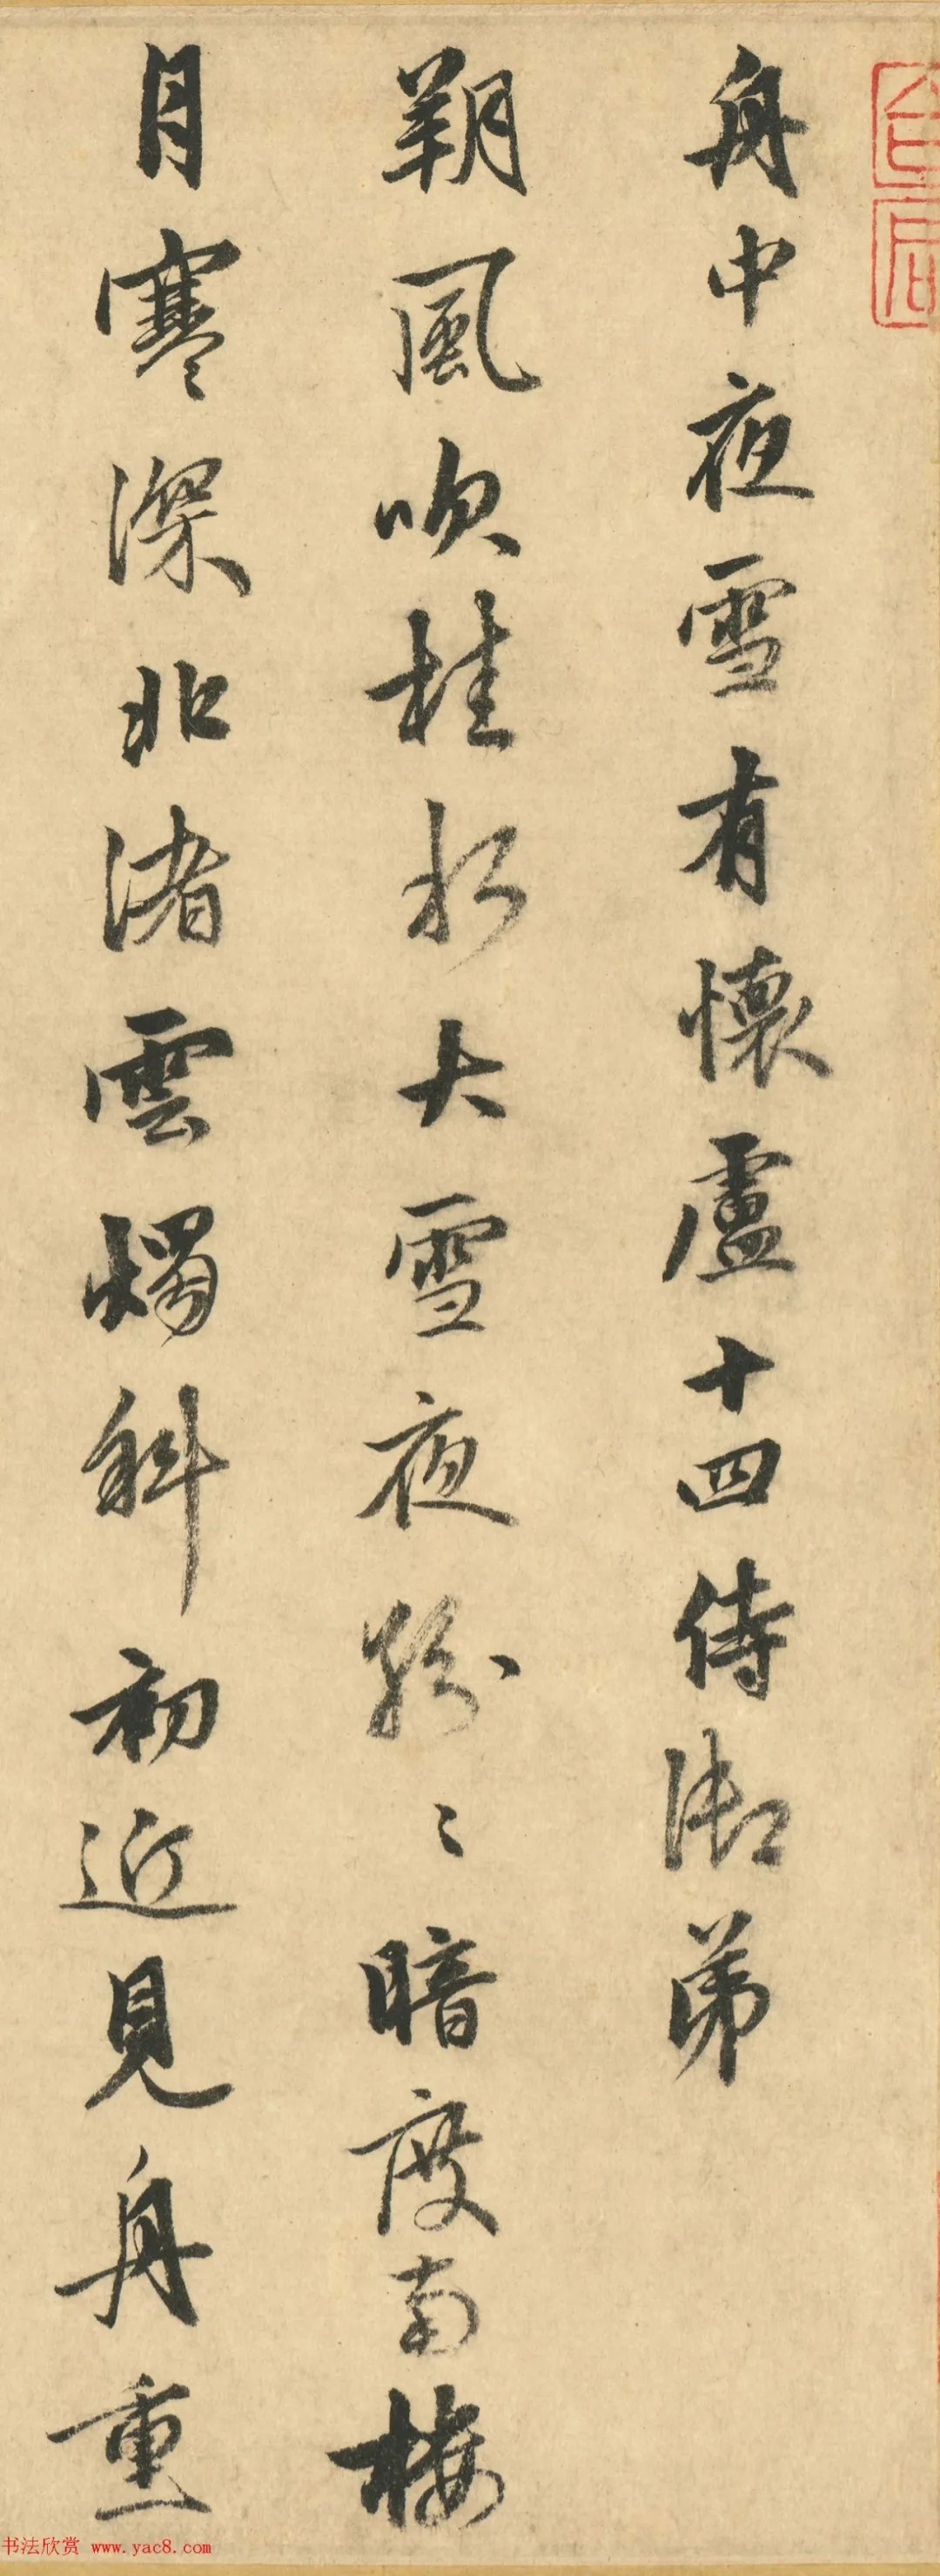 舟中夜雪有懷盧十四侍御弟
朔風吹桂水大雪夜紛〻暗度南樓
月寒深北渚雲燭斜初近見舟重
书法欣赏 www.yac8.com